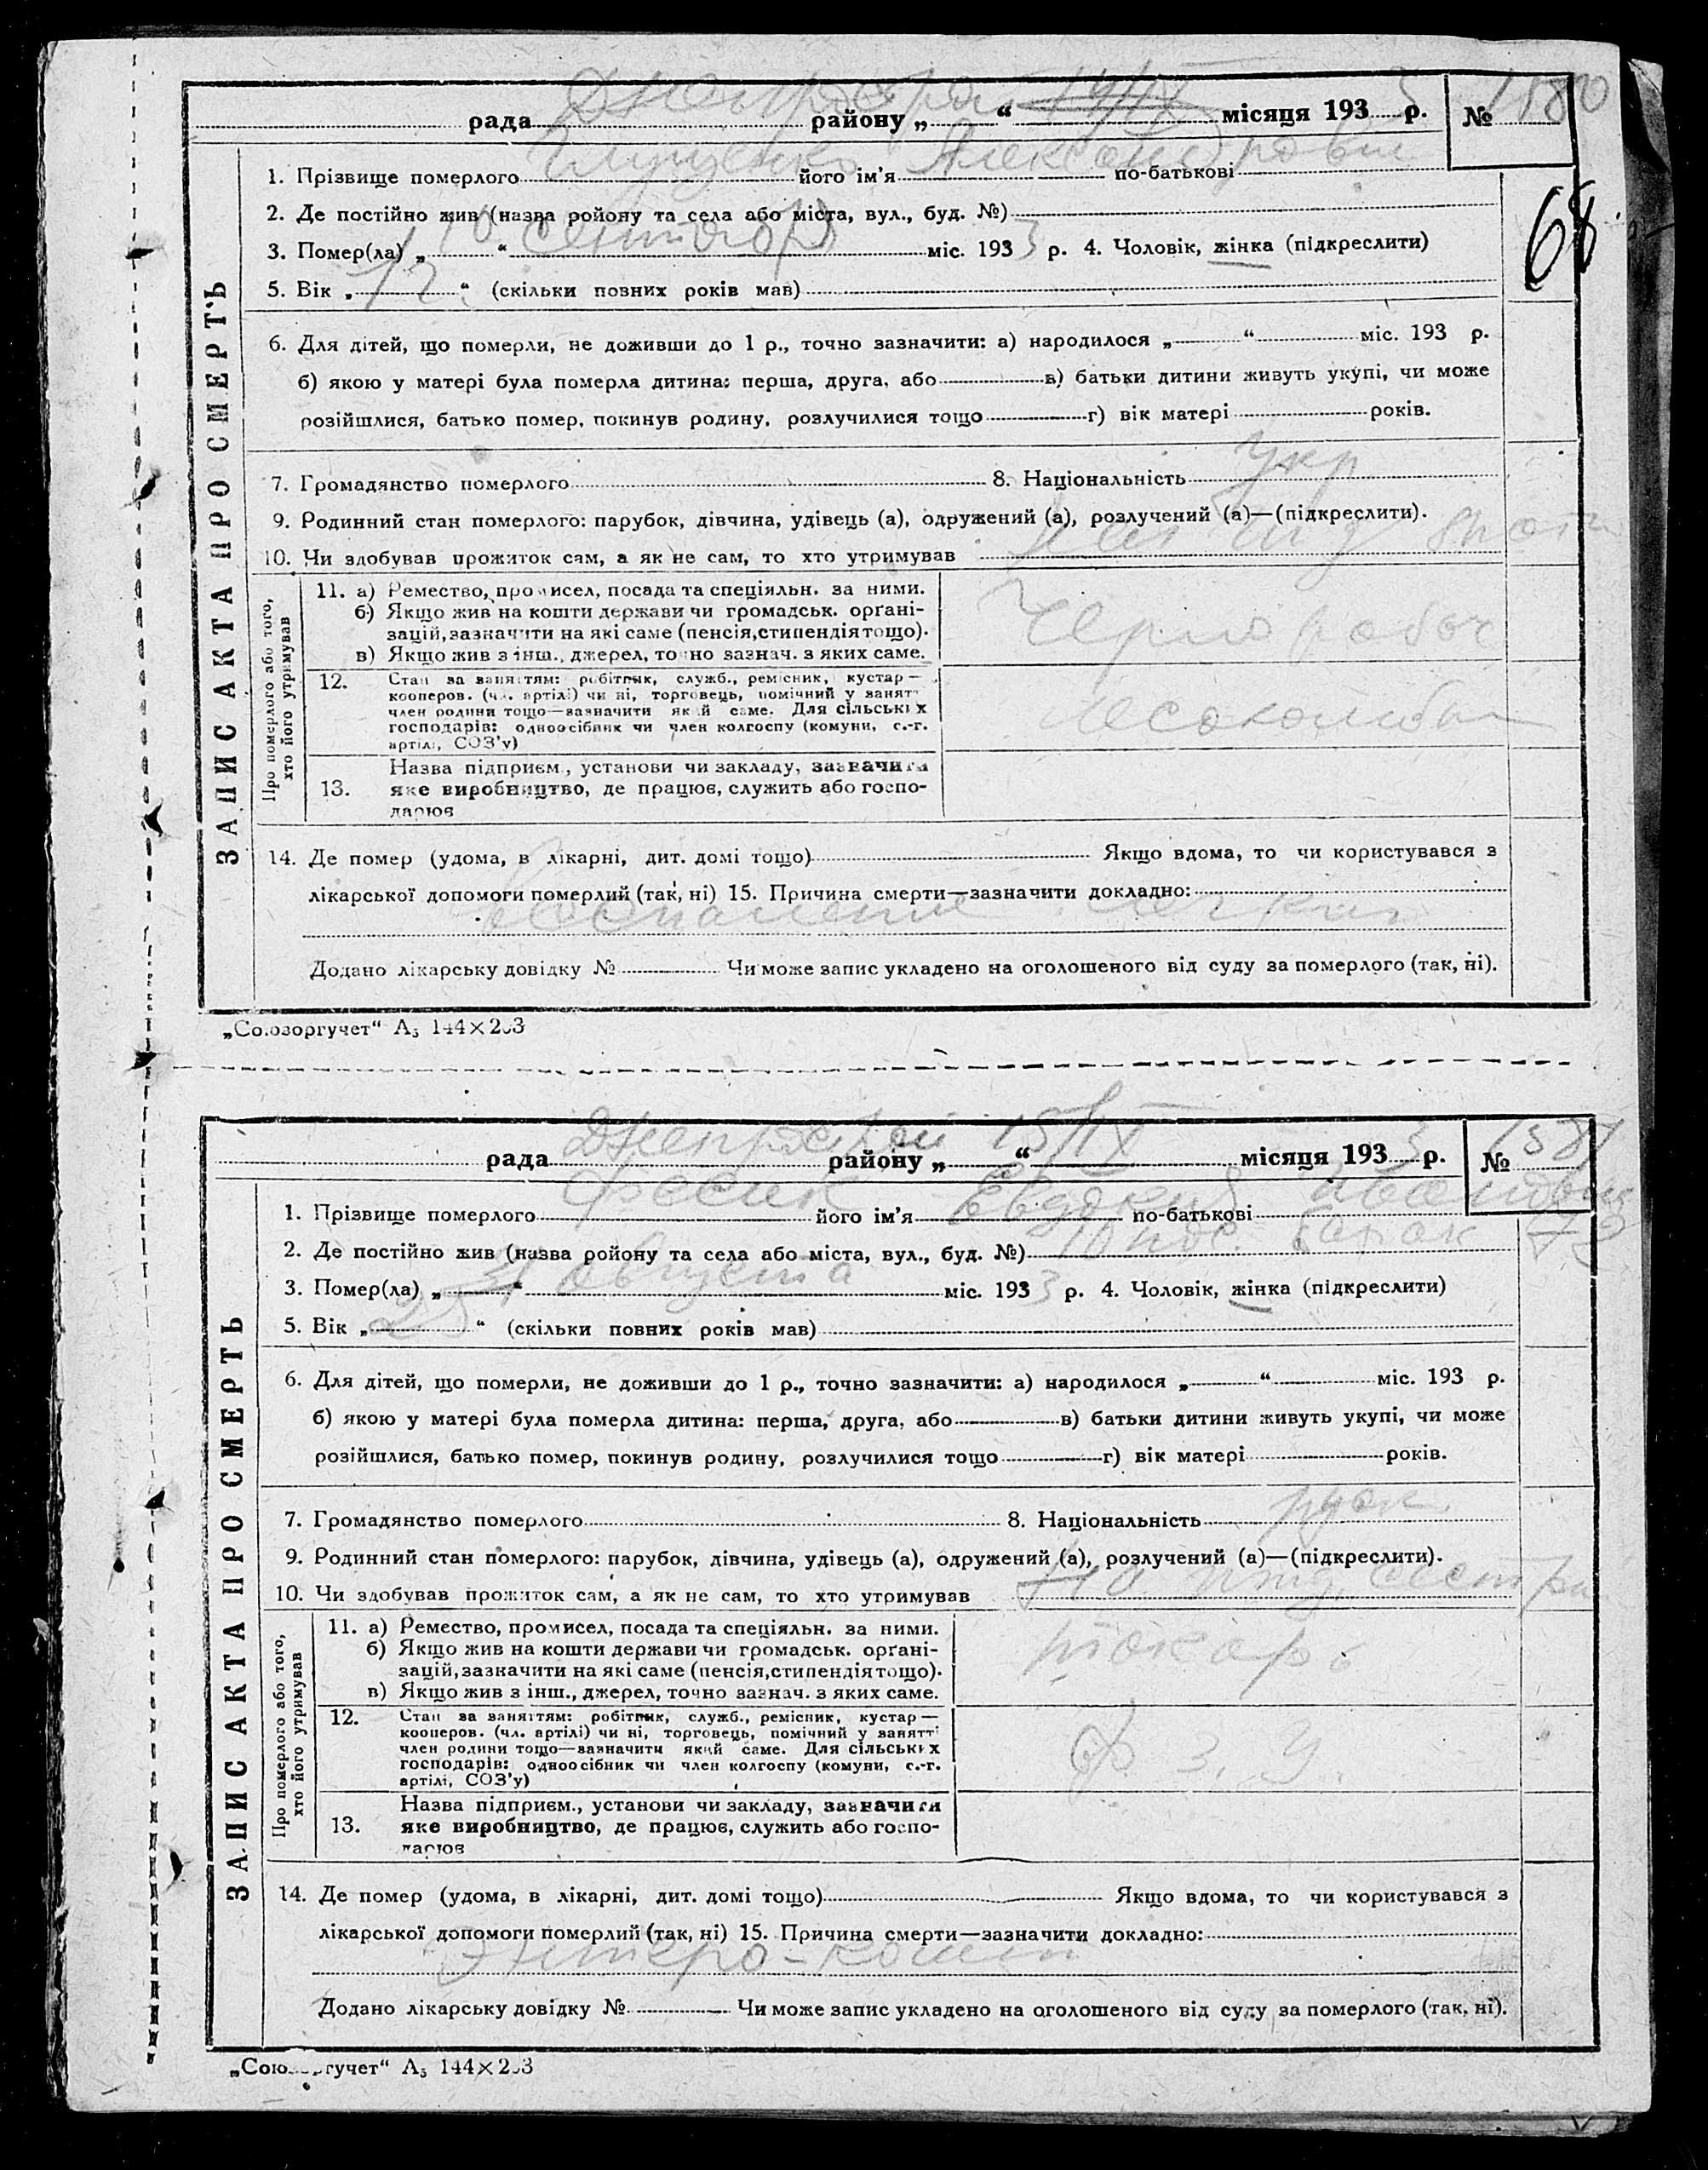 Днепрострой 14/IX
рада района „ “ місяця 1933 р. № 1580
68
1. Прізвище померлого його ім’я Александров по-батькові
2. Де постійно жив (назва ройону та села або міста, вул., буд. №)
3. Помер(ла) „ “ сентября міс. 1933 р. 4. Чоловік, жінка (підкреслити)
5. Вік „ 12 “ (скільки повних років мав)
6. Для дітей, що померли, не доживши до 1 р., точно зазначити: а) народилося „ “ міс. 193 р.
б) якою у матері була померла дитина: перша, друга, або в) батьки дитини живуть укупі, чи може
розійшлися, батько помер, покинув родину, розлучилися тощо г) вік матері років.
7. Громадянство померлого 8. Національність укр
9. Родинний стан померлого: парубок, дівчина, удівець (а), одружений (а), розлучений (а)—(підкреслити).
10. Чи здобував прожиток сам, а як не сам, то хто утримував
ЗАПИС АКТА ПРО СМЕРТЬ
Про померлого або того,
хто його утримував
11. а) Ремество, промисел, посада та спеціяльн. за ними.
б) Якщо жив на кошти держави чи громадськ. орґані-
зацій, зазначити на які саме (пенсія, стипендія тощо).
в) Якщо жив з інш., джерел, точно зазнач. з яких саме.
Чернорабоч
12. Стан за заняттям: робітник, служб., ремісник, кустар—
кооперов. (чл. артілі) чи ні, торговець, помічний у занятт
член родини тощо—зазначити який саме. Для сільських
господарів: одноосібник чи член колгоспу (комуни, с.-г.
артілі, СОЗ’у)
13. Назва підприєм., установи чи закладу, зазначити
яке виробництво, де працює, служить або госпо-
дарює
14. Де помер (удома, в лікарні, дит. домі тощо) Якщо вдома, то чи користувався з
лікарської допомоги померлий (так, ні) 15. Причина смерти—зазначити докладно:
Воспаление легких
Додано лікарську довідку № Чи може запис укладено на оголошеного від суду за померлого (так, ні).
„Союзоргучет“ А₅ 144×203
Днепрострой 15/IX
рада району „ “ місяця 1933 р. № 1581
1. Прізвище померлого Фесик його ім’я Евдокия по-батькові Ивановна
2. Де постійно жив (назва ройону та села або міста, вул., буд. №) 10 пос. барак 73
3. Помер(ла) „ 31 “ августа міс. 1933 р. 4. Чоловік, жінка (підкреслити)
5. Вік „ 25 “ (скільки повних років мав)
6. Для дітей, що померли, не доживши до 1 р., точно зазначити: а) народилося „ “ міс. 193 р.
б) якою у матері була померла дитина: перша, друга, або в) батьки дитини живуть укупі, чи може
розійшлися, батько помер, покинув родину, розлучилися тощо г) вік матері років.
7. Громадянство померлого 8. Національність руск
9. Родинний стан померлого: парубок, дівчина, удівець (а), одружений (а), розлучений (а)—(підкреслити).
10. Чи здобував прожиток сам, а як не сам, то хто утримував На ижд. сестры
ЗАПИС АКТА ПРО СМЕРТЬ
Про померлого або того,
хто його утримував
11. а) Ремество, промисел, посада та спеціяльн. за ними.
б) Якщо жив на кошти держави чи громадськ. орґані-
зацій, зазначити на які саме (пенсія, стипендія тощо).
в) Якщо жив з інш., джерел, точно зазнач. з яких саме.
токарь
12. Стан за заняттям: робітник, служб., ремісник, кустар—
кооперов. (чл. артілі) чи ні, торговець, помічний у занятті
член родини тощо—зазначити який саме. Для сільських
господарів: одноосібник чи член колгоспу (комуни, с.-г.
артілі, СОЗ’у)
Ф. З. У.
13. Назва підприєм., установи чи закладу, зазначити
яке виробництво, де працює, служить або госпо-
дарює
14. Де помер (удома, в лікарні, дит. домі тощо) Якщо вдома, то чи користувався з
лікарської допомоги померлий (так, ні) 15. Причина смерти—зазначити докладно:
Энтеро-колит
Додано лікарську довідку № Чи може запис укладено на оголошеного від суду за померлого (так, ні).
„Союзоргучет“ А₅ 144×203